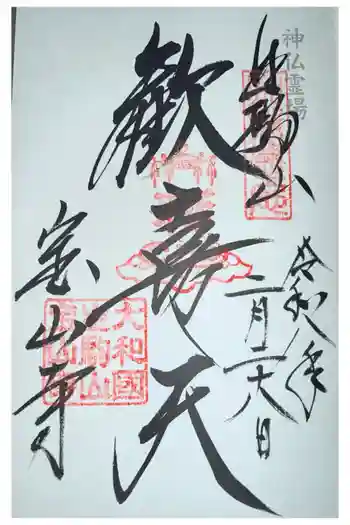 神仏霊場
生駒山
令和八年
二月二六日
歓喜天
宝山寺
大和國
生駒山